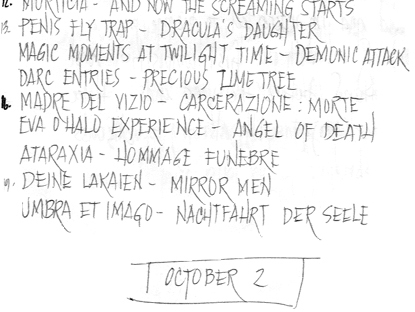 12. MORTICIA - AND NOW THE SCREAMING STARTS
13. PENIS FLY TRAP - DRACULA'S DAUGHTER
MAGIC MOMENTS AT TWILIGHT TIME - DEMONIC ATTACK
DARC ENTRIES - PRECIOUS LIMETREE
16. MADRE DEL VIZIO - CARCERAZIONE : MORTE
EVA O HALO EXPERIENCE - ANGEL OF DEATH
ATARAXIA - HOMMAGE FUNEBRE
19. DEINE LAKAIEN - MIRROR MEN
UMBRA ET IMAGO - NACHTFAHRT DER SEELE
OCTOBER 2